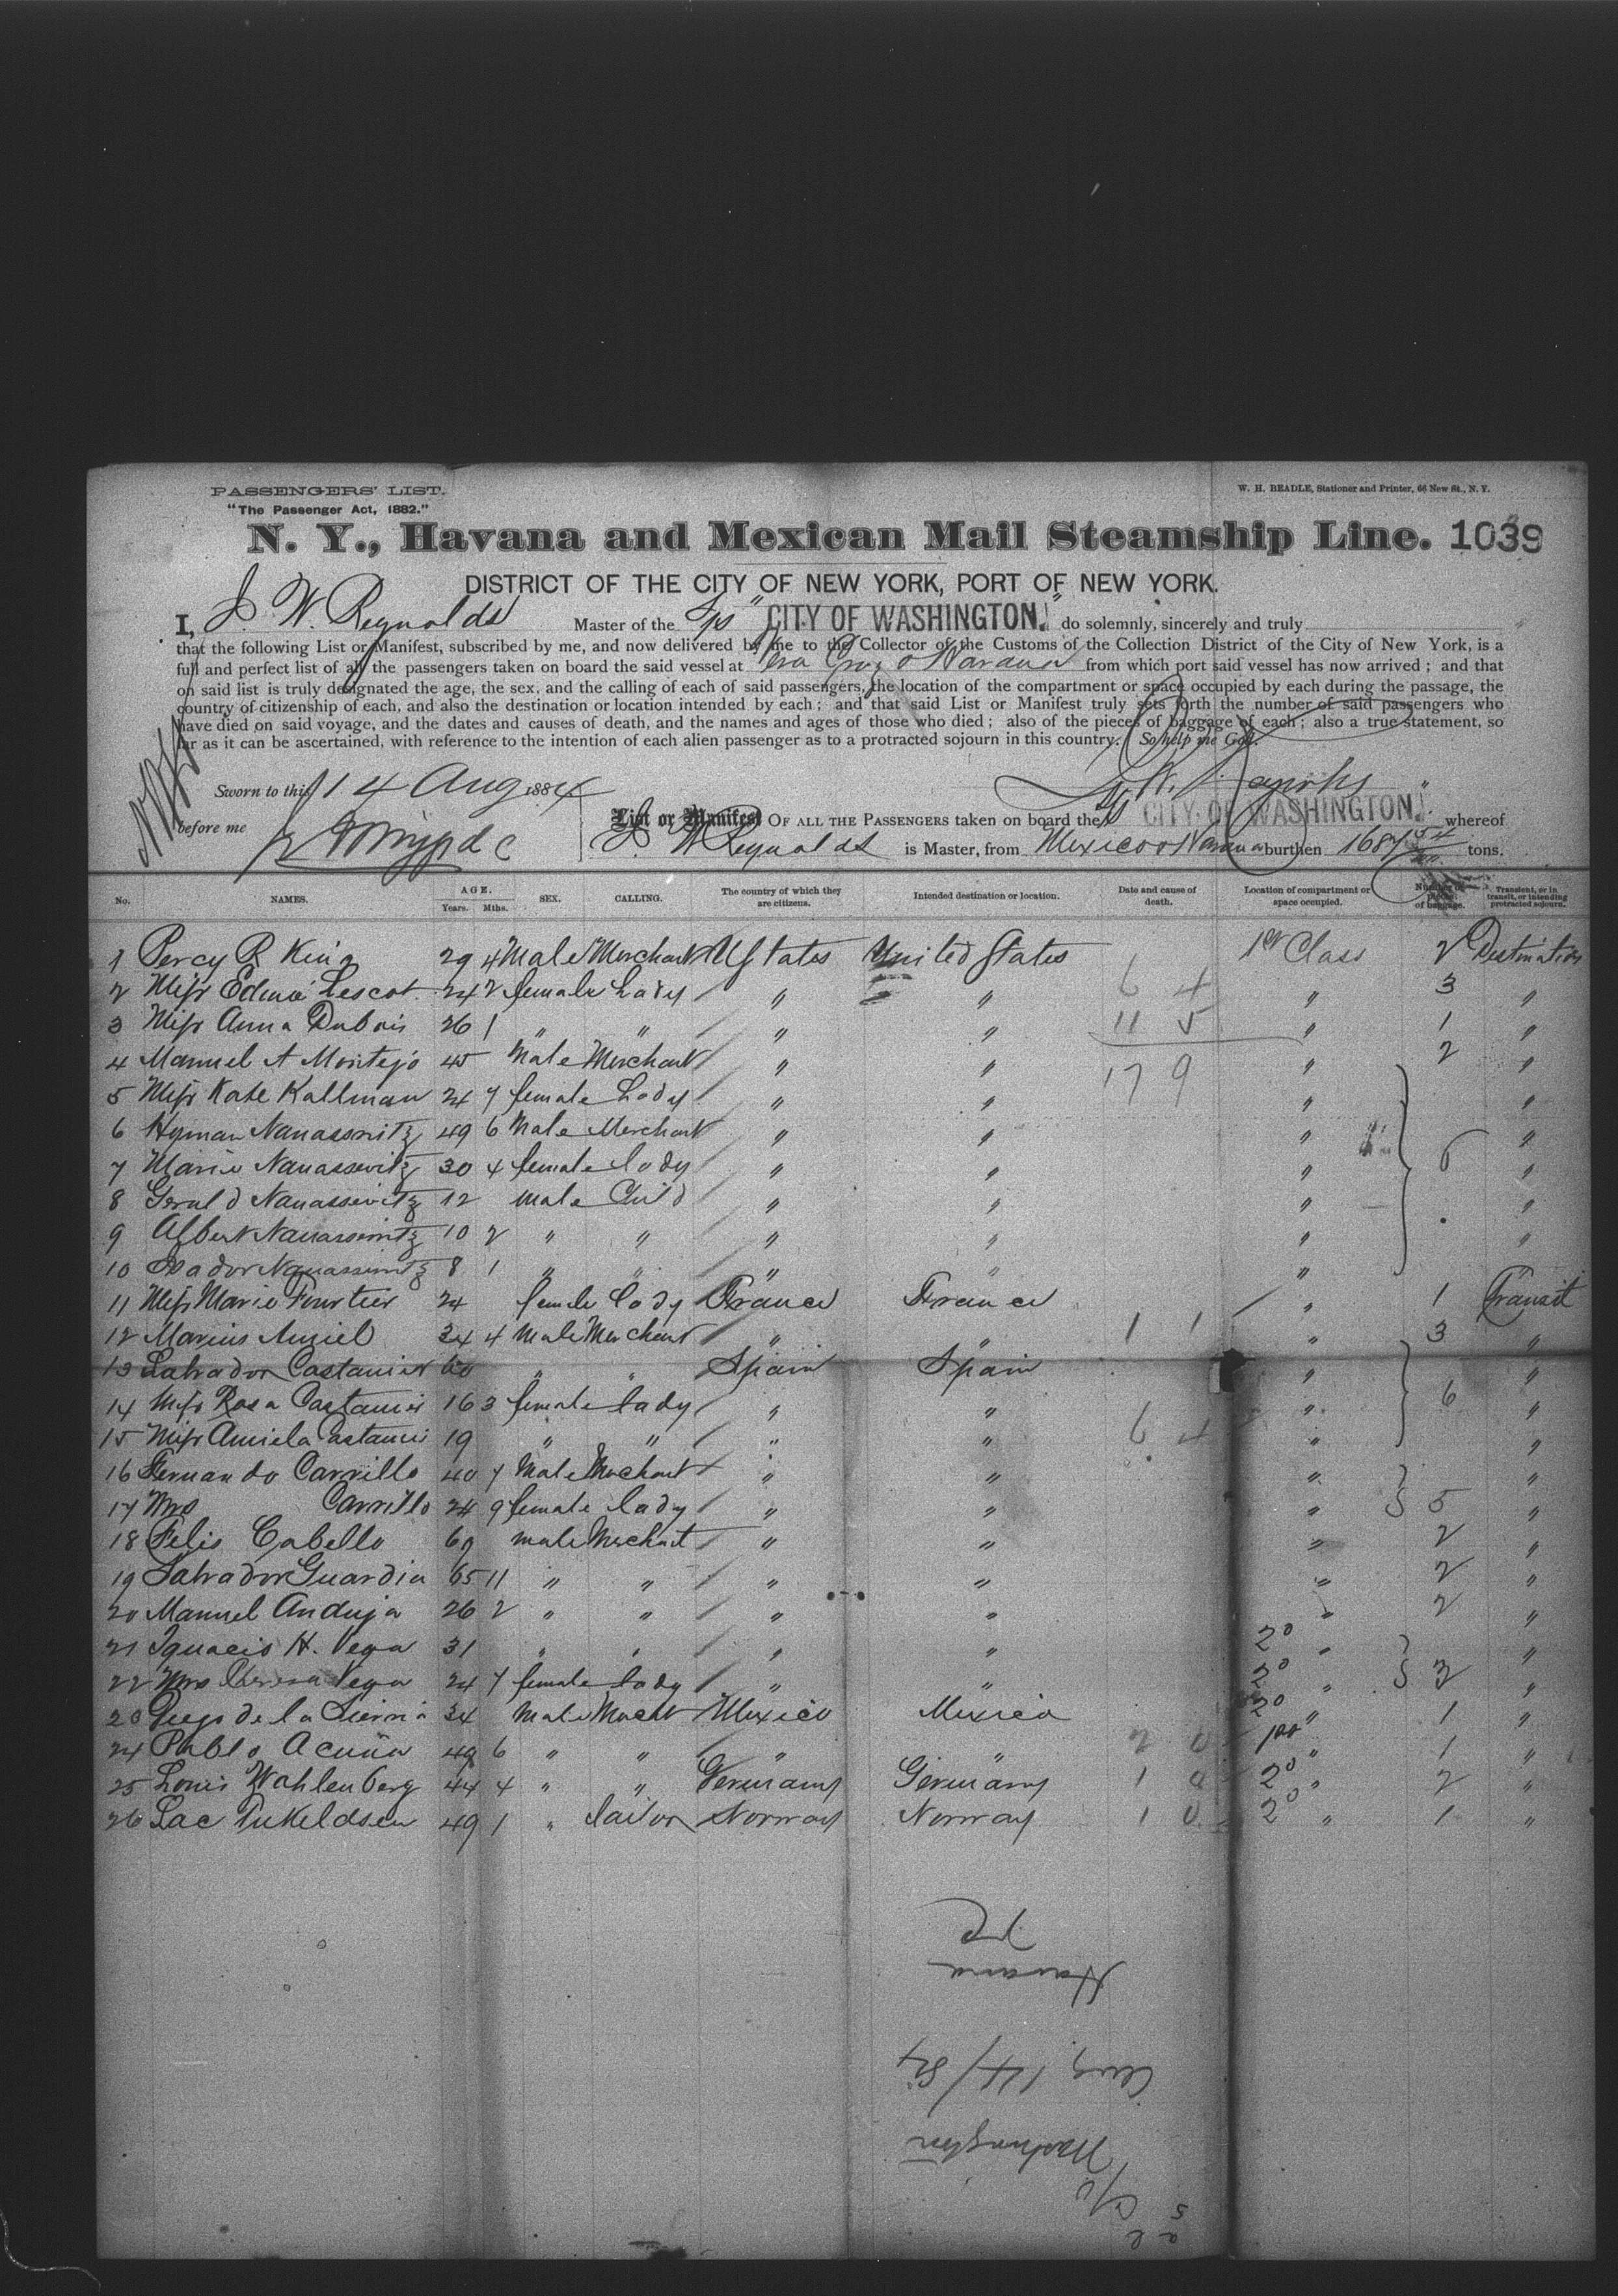 PASSENGERS' LIST.
"The Passenger Act, 1882."
W. H. BEADLE, Stationer and Printer, 66 New St., N. Y.
N. Y., Havana and Mexican Mail Steamship Line. 1039
DISTRICT OF THE CITY OF NEW YORK, PORT OF NEW YORK.
I, J. W. Reynolds Master of the "CITY OF WASHINGTON." do solemnly, sincerely and truly
that the following List or Manifest, subscribed by me, and now delivered by me to the Collector of the Customs of the Collection District of the City of New York, is a
full and perfect list of all the passengers taken on board the said vessel at Vera Cruz & Havana from which port said vessel has now arrived; and that
on said list is truly designated the age, the sex, and the calling of each of said passengers, the location of the compartment or space occupied by each during the passage, the
country of citizenship of each, and also the destination or location intended by each; and that said List or Manifest truly sets forth the number of said passengers who
have died on said voyage, and the dates and causes of death, and the names and ages of those who died; also of the pieces of baggage of each; also a true statement, so
far as it can be ascertained, with reference to the intention of each alien passenger as to a protracted sojourn in this country. So help me God.
Sworn to this 14 Aug 1884
before me
List or Manifest OF ALL THE PASSENGERS taken on board the CITY OF WASHINGTON. whereof
J. W. Reynolds is Master, from Mexico & Havana burthen 1687 tons.
No. NAMES. AGE. Years. Mths. SEX. CALLING. The country of which they are citizens. Intended destination or location. Date and cause of death. Location of compartment or space occupied. Number of pieces of baggage. Transient, or in transit, or intending protracted sojourn.
1 Percy R King 29 4 Male Merchant U States United States 1st Class 2 Destination
2 Miss Edmé Lescot 24 2 female Lady " " 6 4 " 3 "
3 Miss Anna Dubois 26 1 " " " " 11 5 " 1 "
4 Manuel A Montejo 45 Male Merchant " " 17 9 " 2 "
5 Miss Kate Kallman 24 7 female Lady " " " "
6 Hyman Nanassovitz 49 6 Male Merchant " " " "
7 Marie Nanassovitz 30 4 female lady " " " 6 "
8 Gerald Nanassovitz 12 male Child " " " "
9 Albert Nanassovitz 10 2 " " " " " "
10 Isador Nanassovitz 8 1 " " " " "
11 Miss Marie Fourtier 24 female lady France France " 1 Transit
12 Marius Auriel 34 4 Male Merchant " " 1 1 " 3 "
13 Salvador Castanier 60 " " Spain Spain " "
14 Miss Rosa Castanier 16 3 female lady " " " 6 "
15 Miss Amiela Castanier 19 " " " " 6 4 " "
16 Fernando Carrillo 40 7 Male Merchant " " " "
17 Mrs Carrillo 24 9 female lady " " " 5 "
18 Felis Cabello 60 male Merchant " " " 2 "
19 Salvador Guardia 65 11 " " " " " 2 "
20 Manuel Anduja 26 2 " " " " " 2 "
21 Ignacio H. Vega 31 " " " " 2º " "
22 Mrs Vega 24 7 female lady " " 2º " 3 "
23 Diego de la Sierra 34 Male Mercht Mexico Mexico 2º " 1 "
24 Pablo Acuña 49 6 " " " " 2 0 1st " 1 "
25 Louis Wahlenberg 44 4 " " Germany Germany 1 0 2º " 2 "
26 Lac Tukeldsen 49 1 " Sailor Norway Norway 1 0 2º " 1 "
Havana
Aug 14/84
Washington
C/o